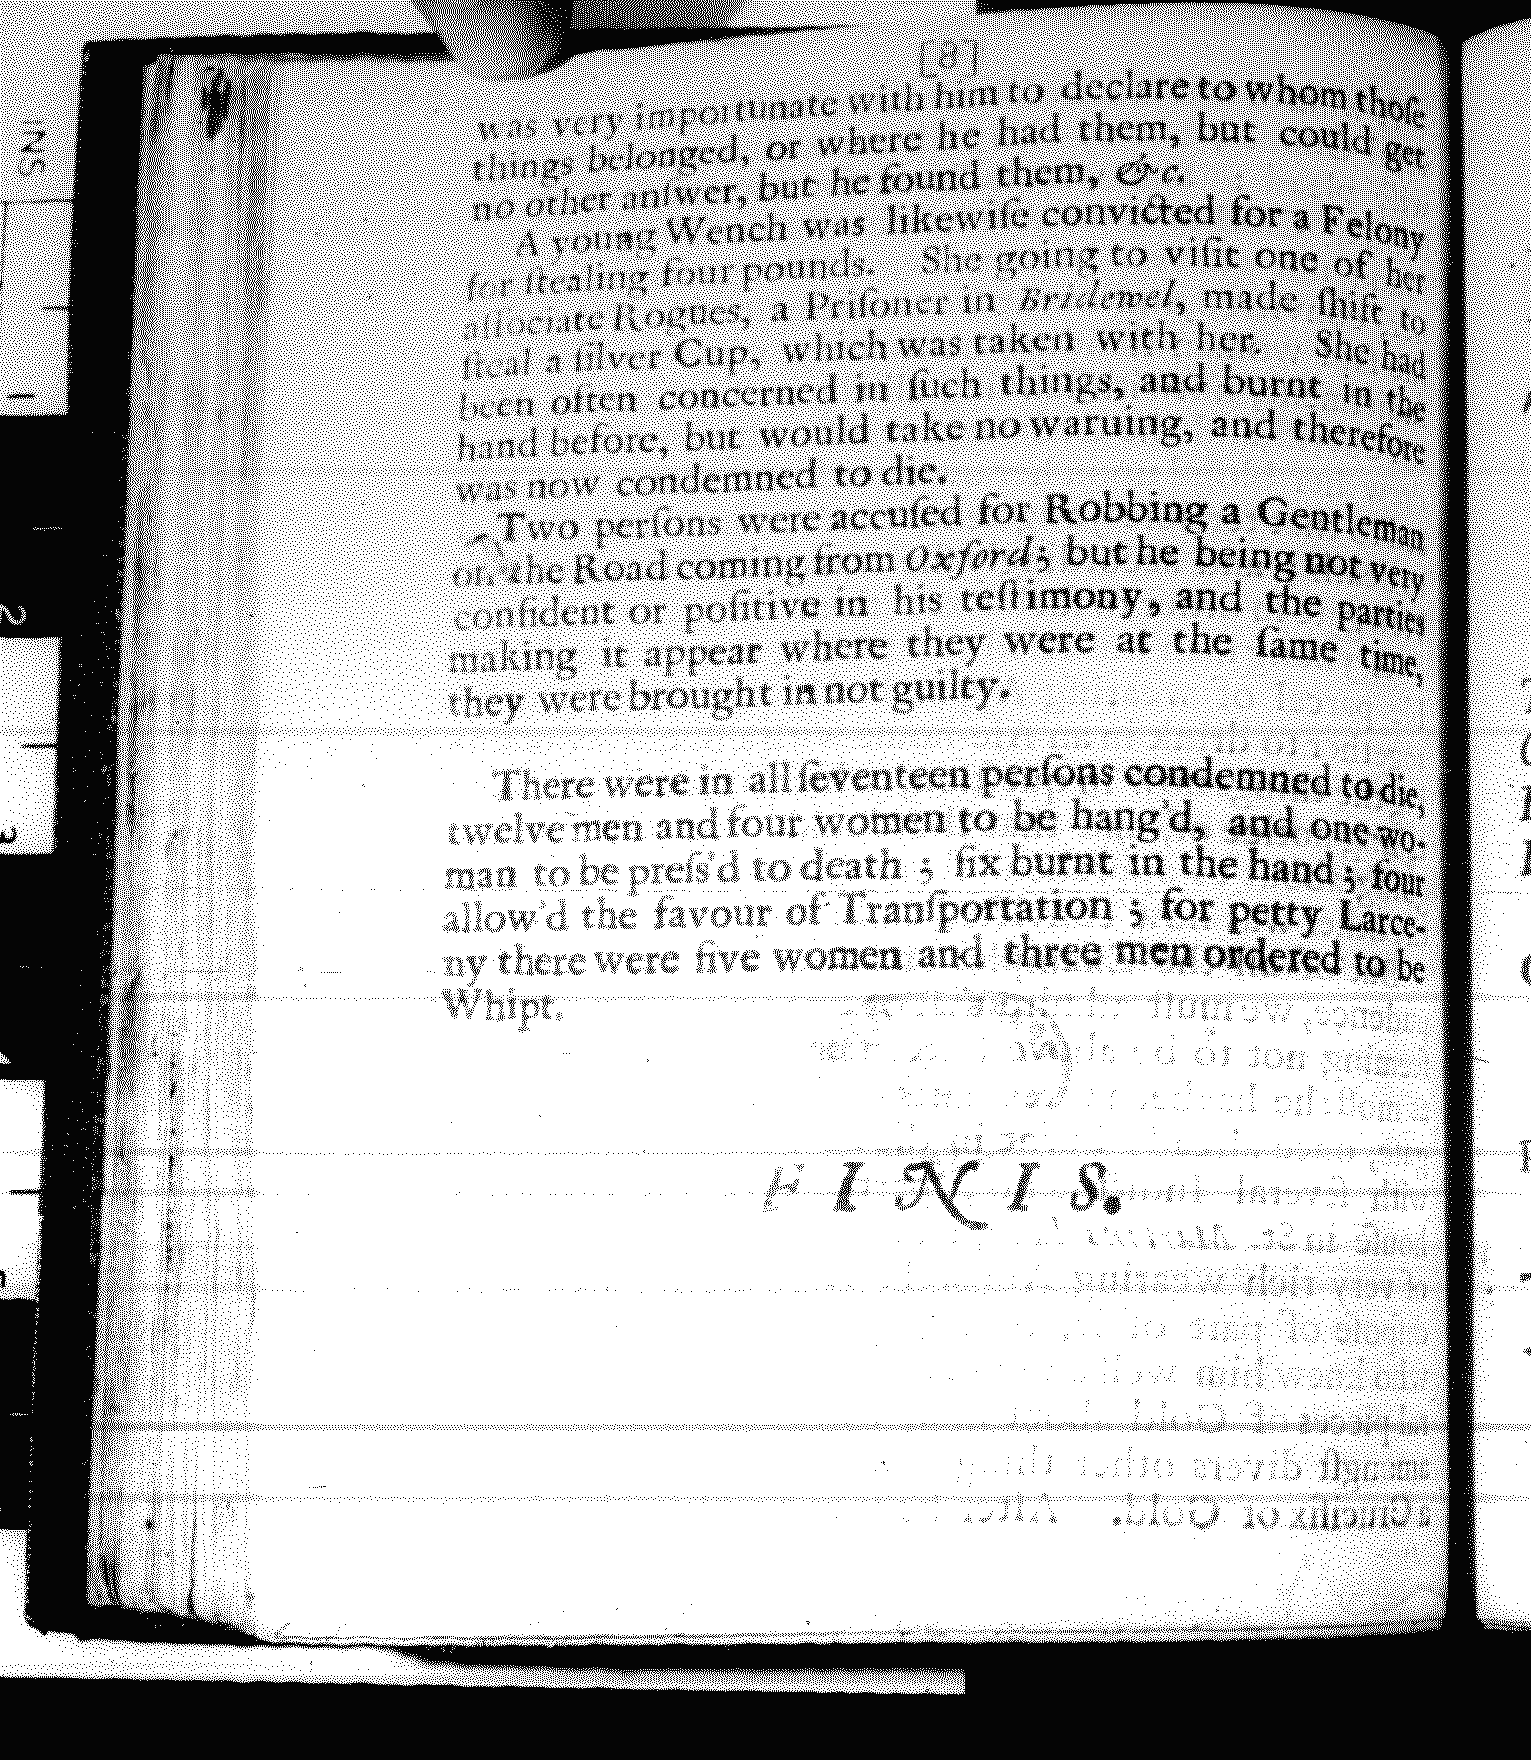 [8]
was very importunate with him to declare to whom thoſe
things belonged, or where he had them, but could get
no other anſwer, but he found them, &c.
A young Wench was likewiſe convicted for a Felony
for ſtealing four pounds. She going to viſit one of her
aſſociate Rogues, a Priſoner in Bridewel, made ſhift to
ſteal a ſilver Cup, which was taken with her. She had
been often concerned in ſuch things, and burnt in the
hand before, but would take no waruing, and therefore
was now condemned to die.
Two perſons were accuſed for Robbing a Gentleman
on the Road coming from Oxford; but he being not very
confident or poſitive in his teſtimony, and the parties
making it appear where they were at the ſame time,
they were brought in not guilty.
There were in all ſeventeen perſons condemned to die,
twelve men and four women to be hang'd, and one wo-
man to be preſs'd to death ; ſix burnt in the hand ; four
allow'd the favour of Tranſportation ; for petty Larce-
ny there were five women and three men ordered to be
Whipt.
FINIS.